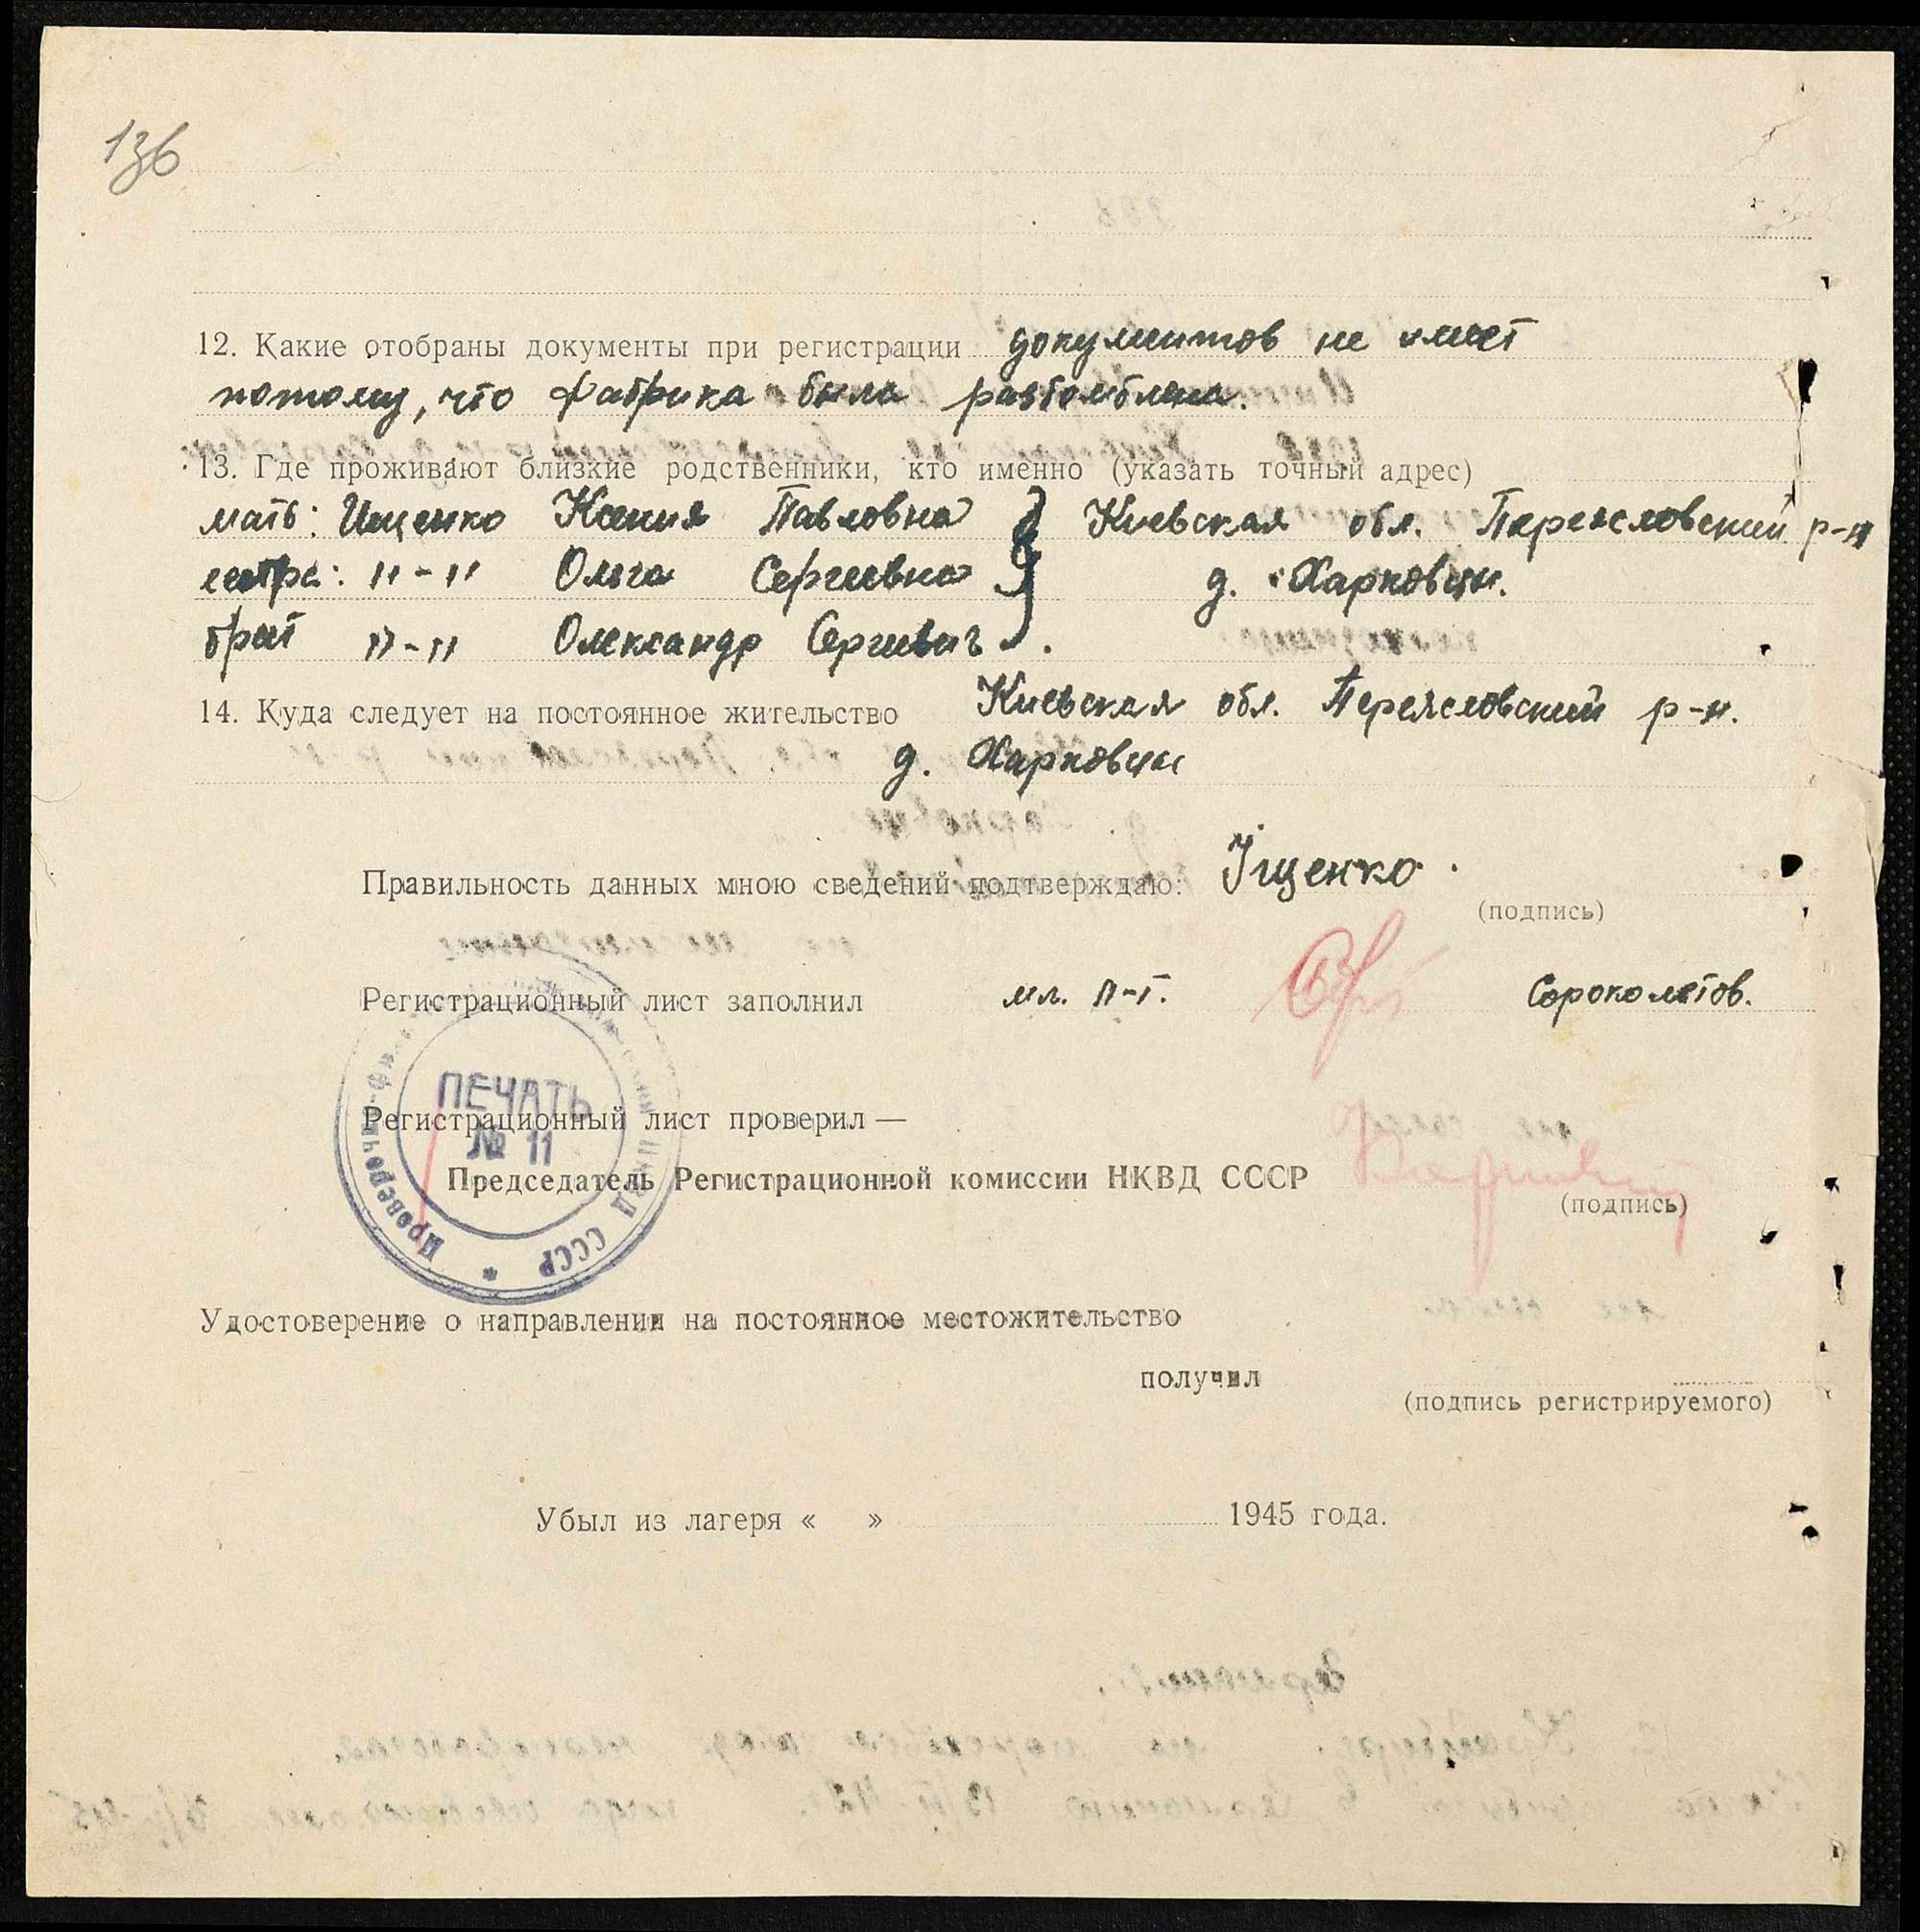 136
12. Какие отобраны документы при регистрации документов не имеет
потому, что фабрика была разбомблена.
13. Где проживают близкие родственники, кто именно (указать точный адрес)
мать: Ищенко Ксения Павловна Киевская обл. Переясловский р-н
сестра: "-" Ольга Сергеевна д. Харковцы.
брат "-" Олександр Сергиевич.
14. Куда следует на постоянное жительство Киевская обл. Переясловский р-н.
д. Харковцы
Правильность данных мною сведений подтверждаю: Іщенко.
(подпись)
Регистрационный лист заполнил мл. л-т. Сороколетов.
ПЕЧАТЬ
№ 11
СССР * Проверочн
Регистрационный лист проверил —
Председатель Регистрационной комиссии НКВД СССР
(подпись)
Удостоверение о направлении на постоянное местожительство
получил
(подпись регистрируемого)
Убыл из лагеря « » 1945 года.